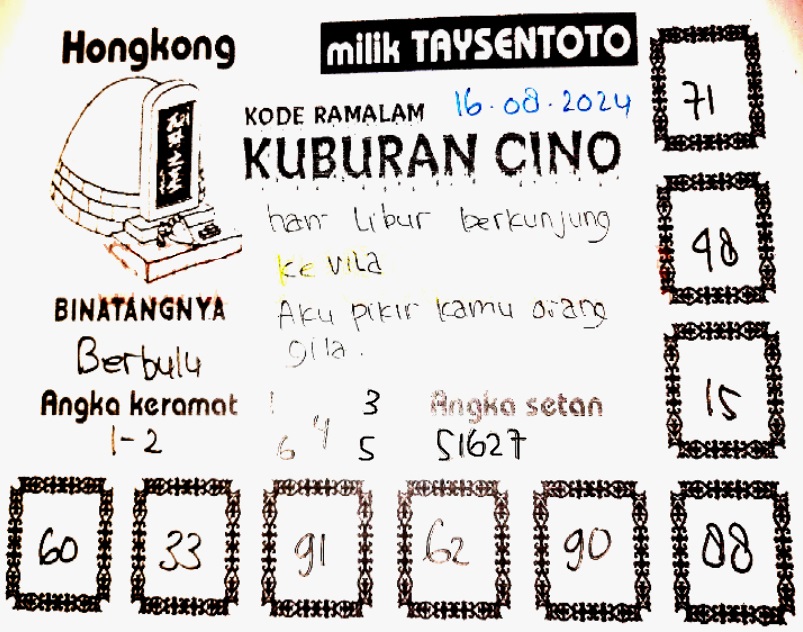 Hongkong
milik TAYSENTOTO
71
KODE RAMALAM 16.08.2024
KUBURAN CINO
hari Libur berkunjung
ke Vila
48
BINATANGNYA
Aku pikir kamu orang
gila.
Berbulu
15
Angka keramat
1 3
Angka setan
1-2
4
6 5
51627
60 33 91 62 90 88